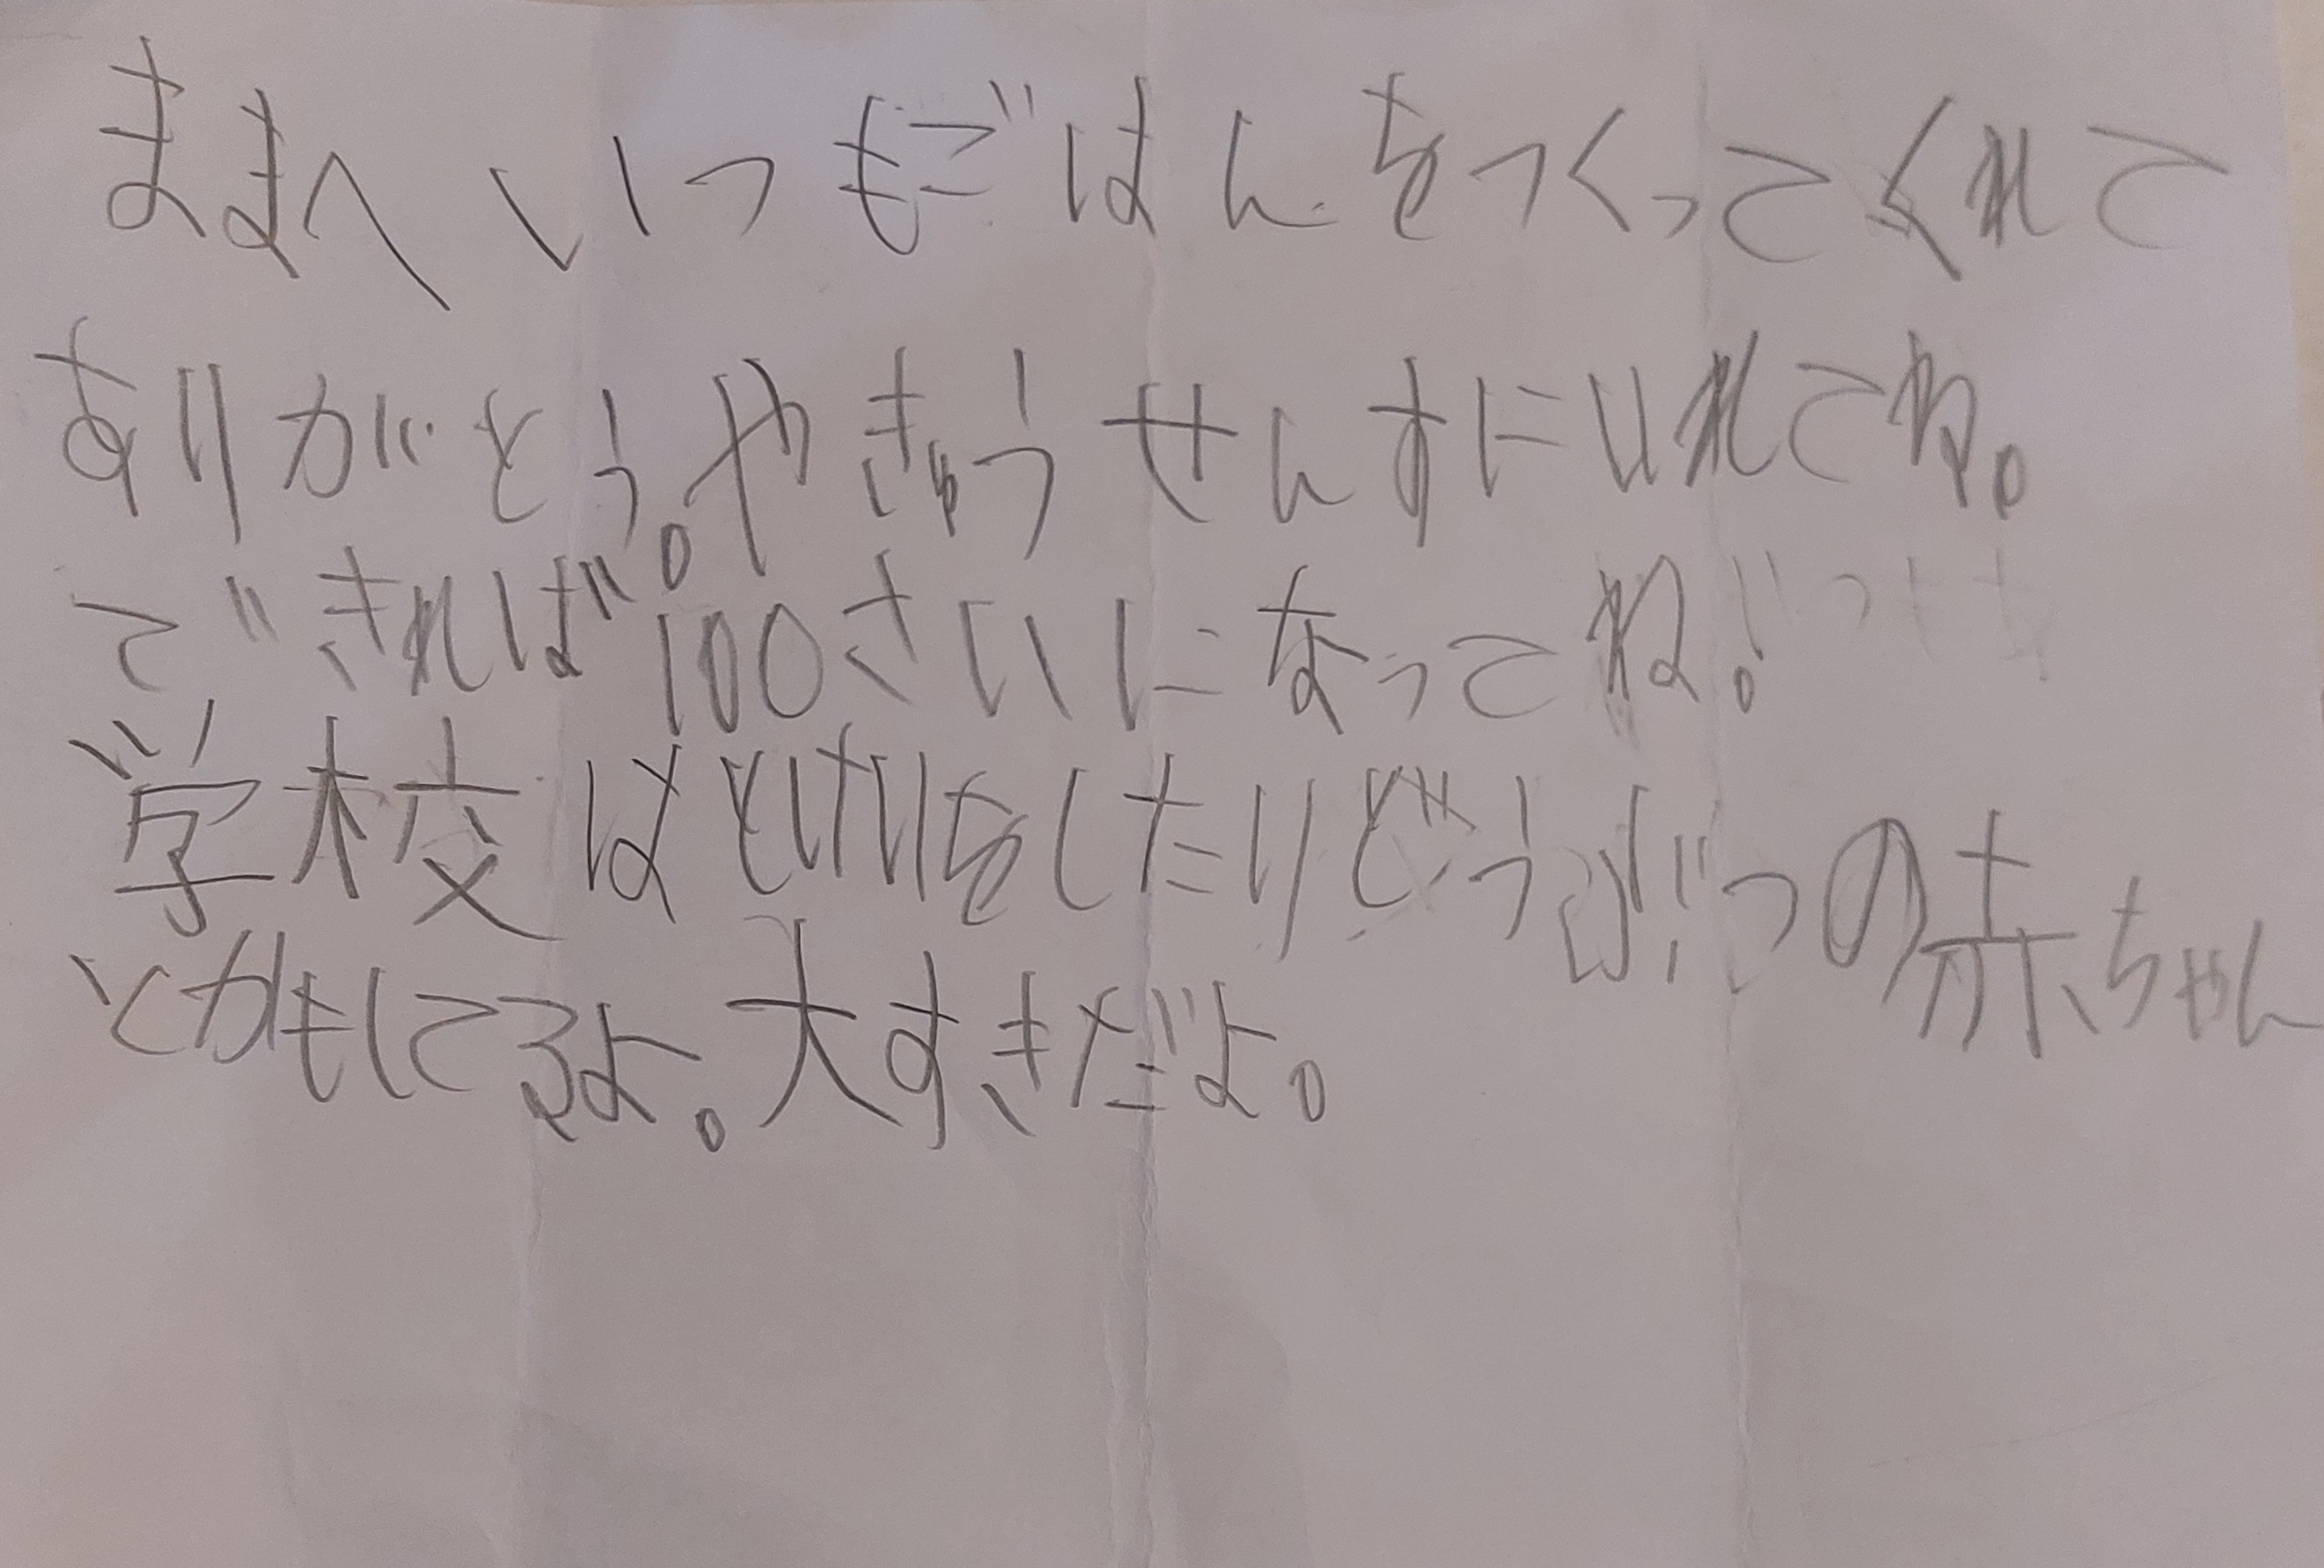 ままへ いつもごはんをつくってくれて
ありがとう。やきゅうせんすにいれてね。
できれば100さいになってね。
学校はとけいをしたりどうぶつの赤ちゃん
とかもしてるよ。大すきだよ。